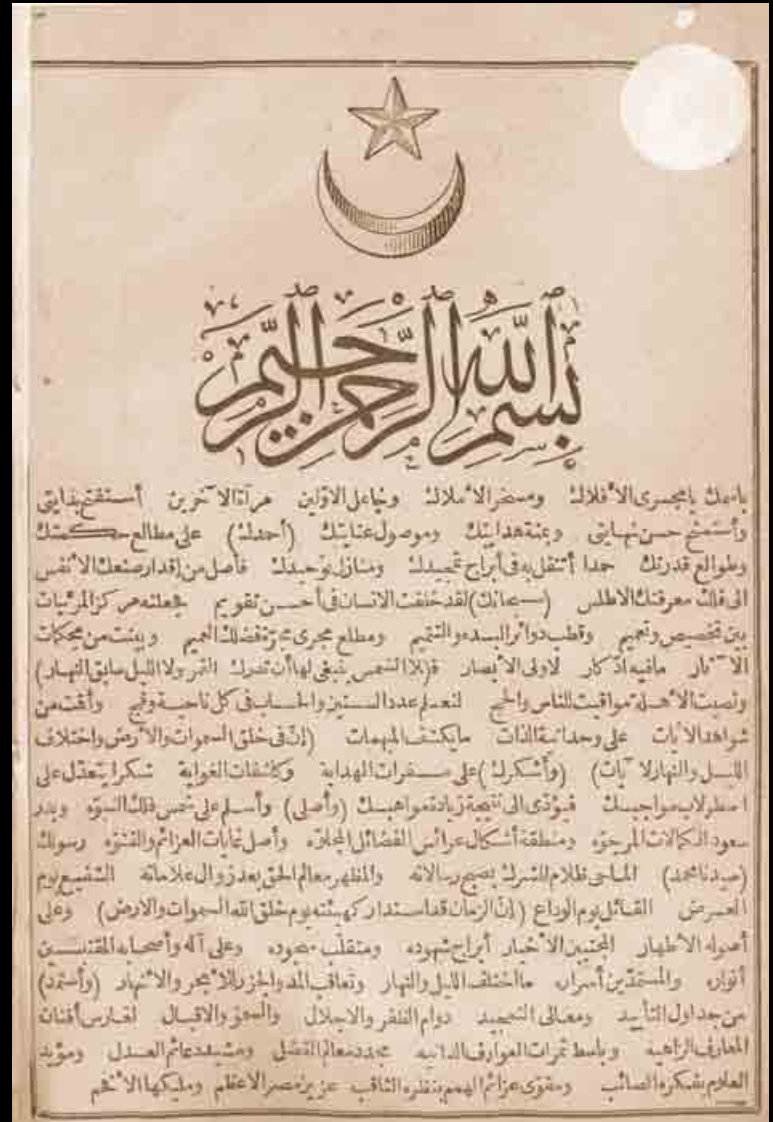 بسم الله الرحمن الرحيم
باسمك يا مجرى الأفلاك ومسخر الاملاك وجاعل الاولين مرآة الآخرين أستفتح بدايتى
وأستمنح حسن نهايتى وبمنة هدايتك وموصول عنايتك (أحمدك) على مطالع حكمتك
وطوالع قدرتك حمدا أتنقل به فى أبراج تمجيدك ومنازل توحيدك فأصل من إقدار صنعك الانفس
الى فلك معرفتك الاطلس (سبحانك) لقد خلقت الانسان فى أحسن تقويم فجعلته مركز المرئيات
بين تخصيص وتعميم وقطب دوائر البدء والتتميم ومطلع مجرى مجرة فضلك العميم وبينت من محكمات
الآثار مافيه اذكار لاولى الأبصار فـ(لا الشمس ينبغى لها أن تدرك القمر ولا الليل سابق النهار)
ونصبت الأهلة مواقيت للناس والحج لنعلم عدد السنين والحساب فى كل ناحية وفج وأقمت من
شواهد الآيات على وحدانية الذات مايكشف المبهمات (إن فى خلق السموات والأرض واختلاف
الليل والنهار لآيات) (وأشكرك) على مسفرات الهداية وكاشفات الغواية شكرا يتعدل على
اصطرلاب مواجبك فيؤدى الى نتيجة زيادة مواهبك (وأصلى) وأسلم على شمس فلك النبوّه وبدر
سعود الكمالات المرجوّه ومنطقة أشكال عرائس الفضائل المجلوّه وأصل غايات العزائم والفتوّه رسولك
(سيدنا محمد) الماحى ظلام الشرك بصبح رسالاته والمظهر معالم الحق بعد زوال علاماته الشفيع يوم
العرض القائل يوم الوداع (إن الزمان قد استدار كهيئته يوم خلق الله السموات والارض) وعلى
أصوله الأطهار المجتبين الأخيار أبراج شهوده ومتقلب سعوده وعلى آله وأصحابه المقتبسين
أنواره والمستمدّين أسراره ما اختلف الليل والنهار وتعاقب المد والجزر للأبحر والأنهار (وأستمد)
من جداول التأييد ومعالى التمجيد دوام الظفر والاجلال والسعود والاقبال لغارس أفنان
المعارف الزاهيه وباسط ثمرات العوارف الدانيه مجدد معالم الفضل ومشيد دعائم العدل ومؤيد
العلوم بفكره الصائب ومقوى عزائم الهمم بنظره الثاقب عزيز مصر الاعظم ومليكها الأفخم